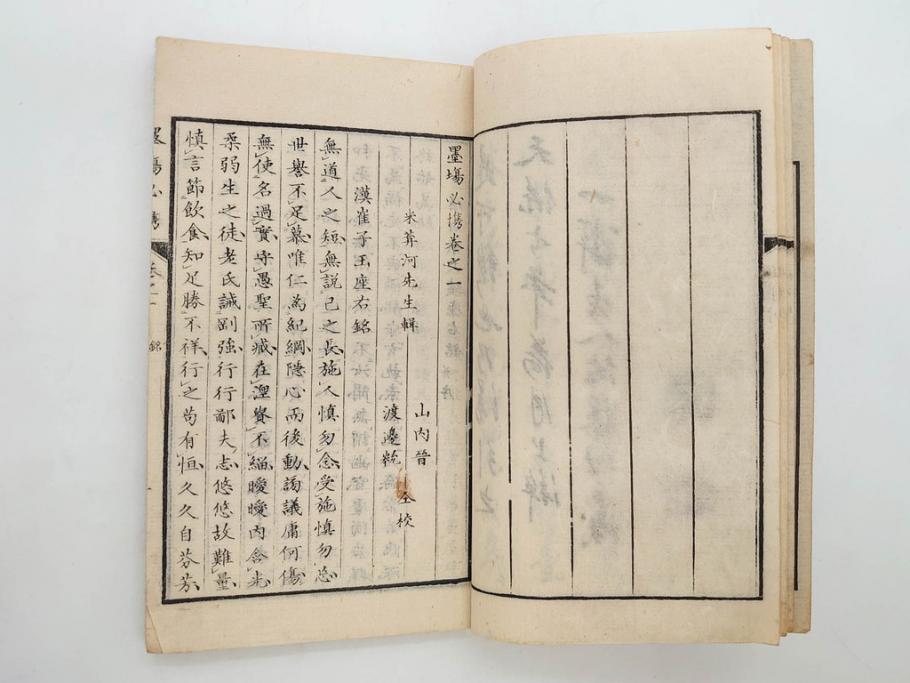 墨場必携卷之一
米菴河先生輯
山内晉
渡邉
仝校
漢崔子玉座右銘
無道人之短無說己之長施人慎勿念受施慎勿忘
世譽不足慕唯仁為紀綱隱心而後動謗議庸何傷
無使名過實守愚聖所臧在涅貴不緇曖曖内含光
柔弱生之徒老氏誡剛強行行鄙夫志悠悠故難量
慎言節飲食知足勝不祥行之苟有恒久久自芬芳
墨場必携
卷之一
銘